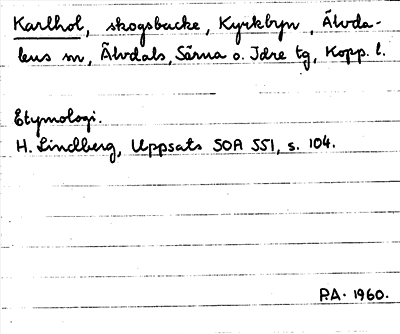 Karlhol, skogsbacke, Kyrkbyn, Älvda-
lens sn, Älvdals, Särna o. Idre tg, Kopp. l.
Etymologi.
H. Lindberg, Uppsats SOA 551, s. 104.
P.A. 1960.